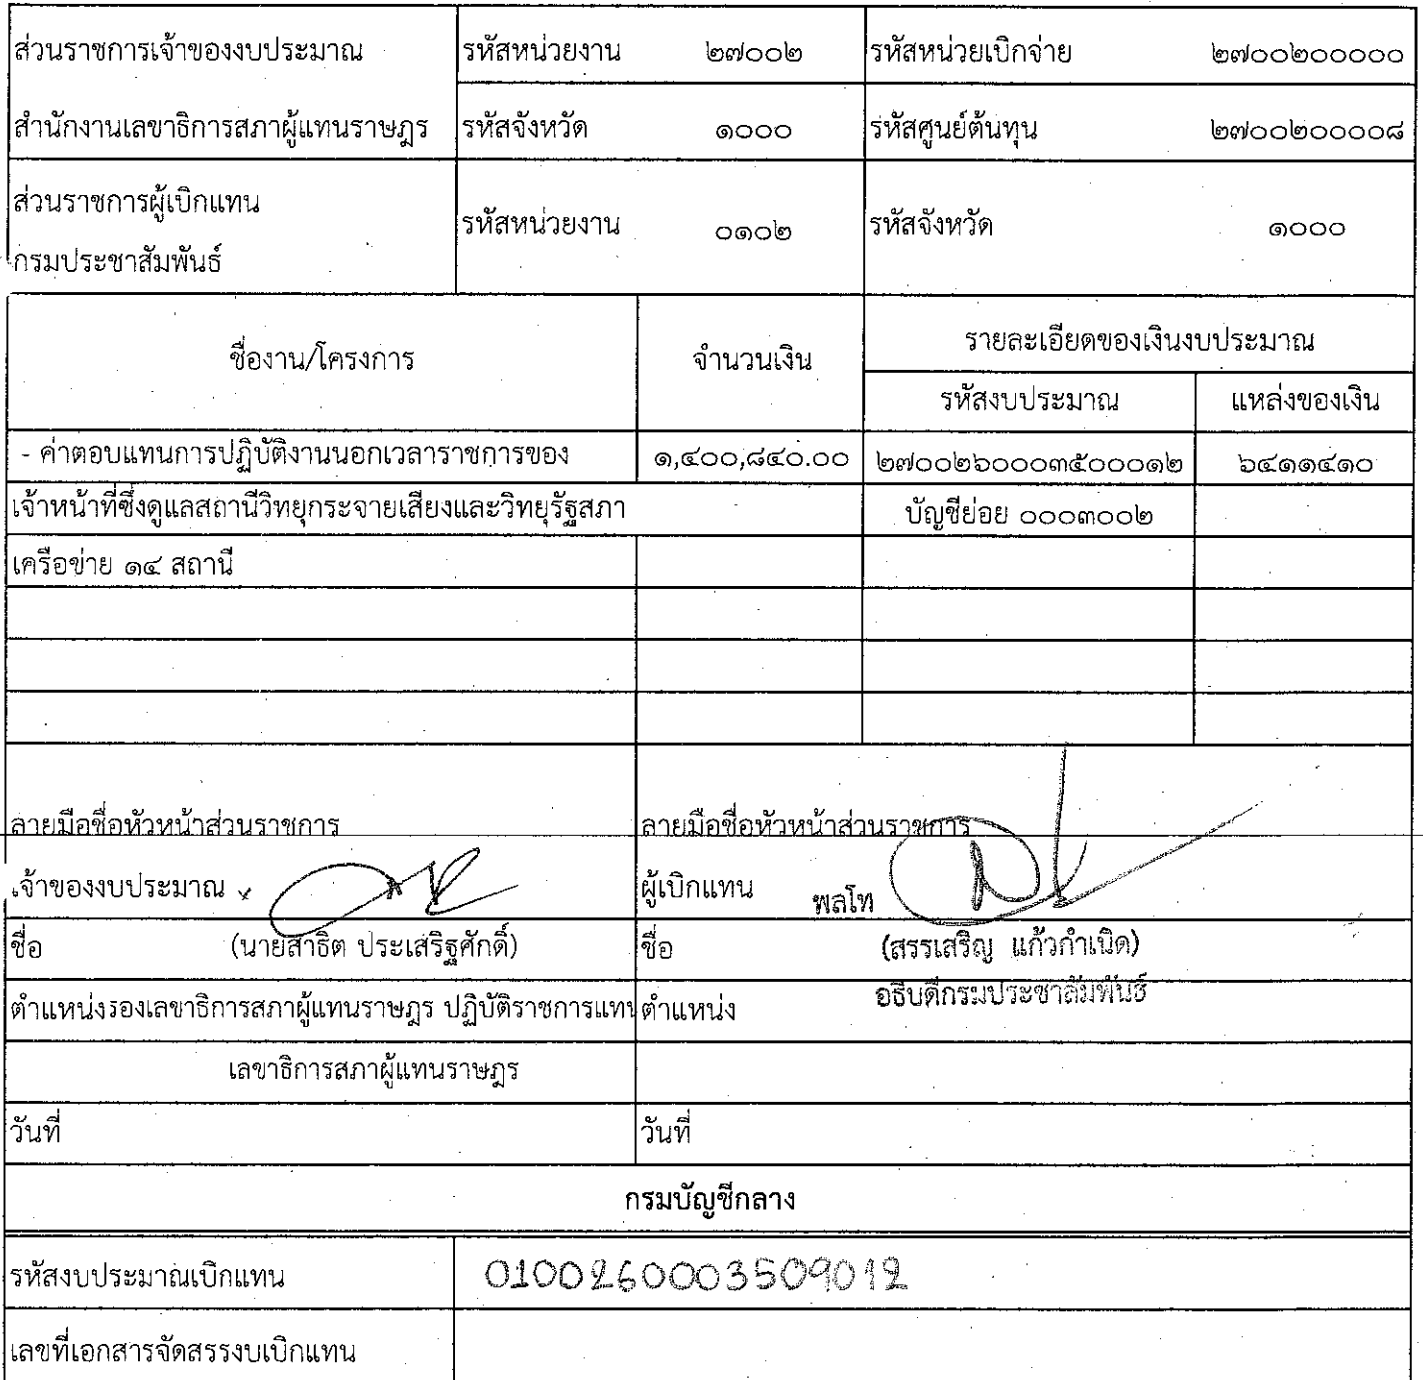 ส่วนราชการเจ้าของงบประมาณ รหัสหน่วยงาน ๒๗๐๐๒ รหัสหน่วยเบิกจ่าย ๒๗๐๐๒๐๐๐๐๐
สำนักงานเลขาธิการสภาผู้แทนราษฎร รหัสจังหวัด ๑๐๐๐ รหัสศูนย์ต้นทุน ๒๗๐๐๒๐๐๐๐๘
ส่วนราชการผู้เบิกแทน
กรมประชาสัมพันธ์ รหัสหน่วยงาน ๐๑๐๒ รหัสจังหวัด ๑๐๐๐
ชื่องาน/โครงการ จำนวนเงิน รายละเอียดของเงินงบประมาณ
รหัสงบประมาณ แหล่งของเงิน
- ค่าตอบแทนการปฏิบัติงานนอกเวลาราชการของ ๑,๔๐๐,๘๔๐.๐๐ ๒๗๐๐๒๖๐๐๐๓๕๐๐๐๑๒ ๖๔๑๑๔๑๐
เจ้าหน้าที่ซึ่งดูแลสถานีวิทยุกระจายเสียงและวิทยุรัฐสภา บัญชีย่อย ๐๐๐๓๐๐๒
เครือข่าย ๑๔ สถานี
ลายมือชื่อหัวหน้าส่วนราชการ ลายมือชื่อหัวหน้าส่วนราชการ
เจ้าของงบประมาณ ผู้เบิกแทน พลโท
ชื่อ (นายสาธิต ประเสริฐศักดิ์) ชื่อ (สรรเสริญ แก้วกำเนิด)
ตำแหน่งรองเลขาธิการสภาผู้แทนราษฎร ปฏิบัติราชการแทน ตำแหน่ง อธิบดีกรมประชาสัมพันธ์
เลขาธิการสภาผู้แทนราษฎร
วันที่ วันที่
กรมบัญชีกลาง
รหัสงบประมาณเบิกแทน 0100260003509012
เลขที่เอกสารจัดสรรงบเบิกแทน